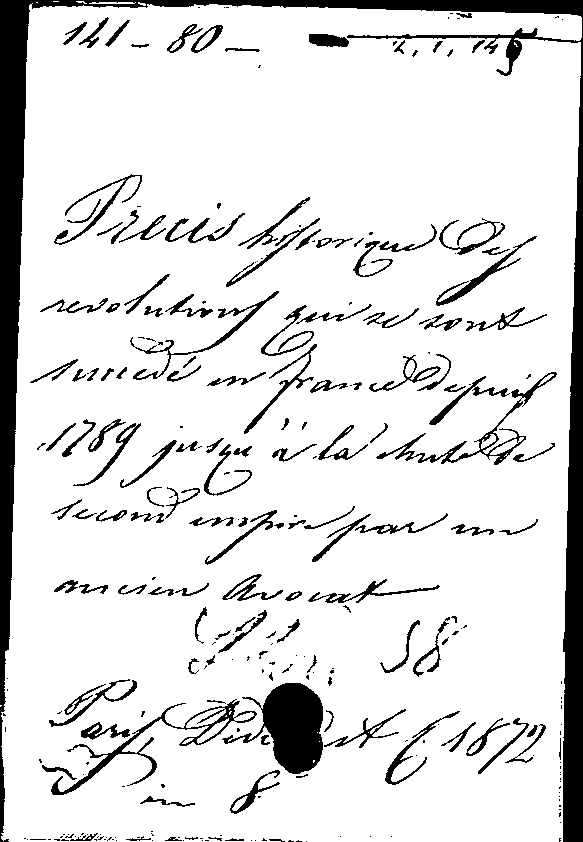 141 - 80 - 2, 1, 145
Precis historique des
revolutions qui se sont
succedé en france depuis
1789 jusqu'à la chute de
second empire par un
ancien avocat
58
Paris, 1872
in 8